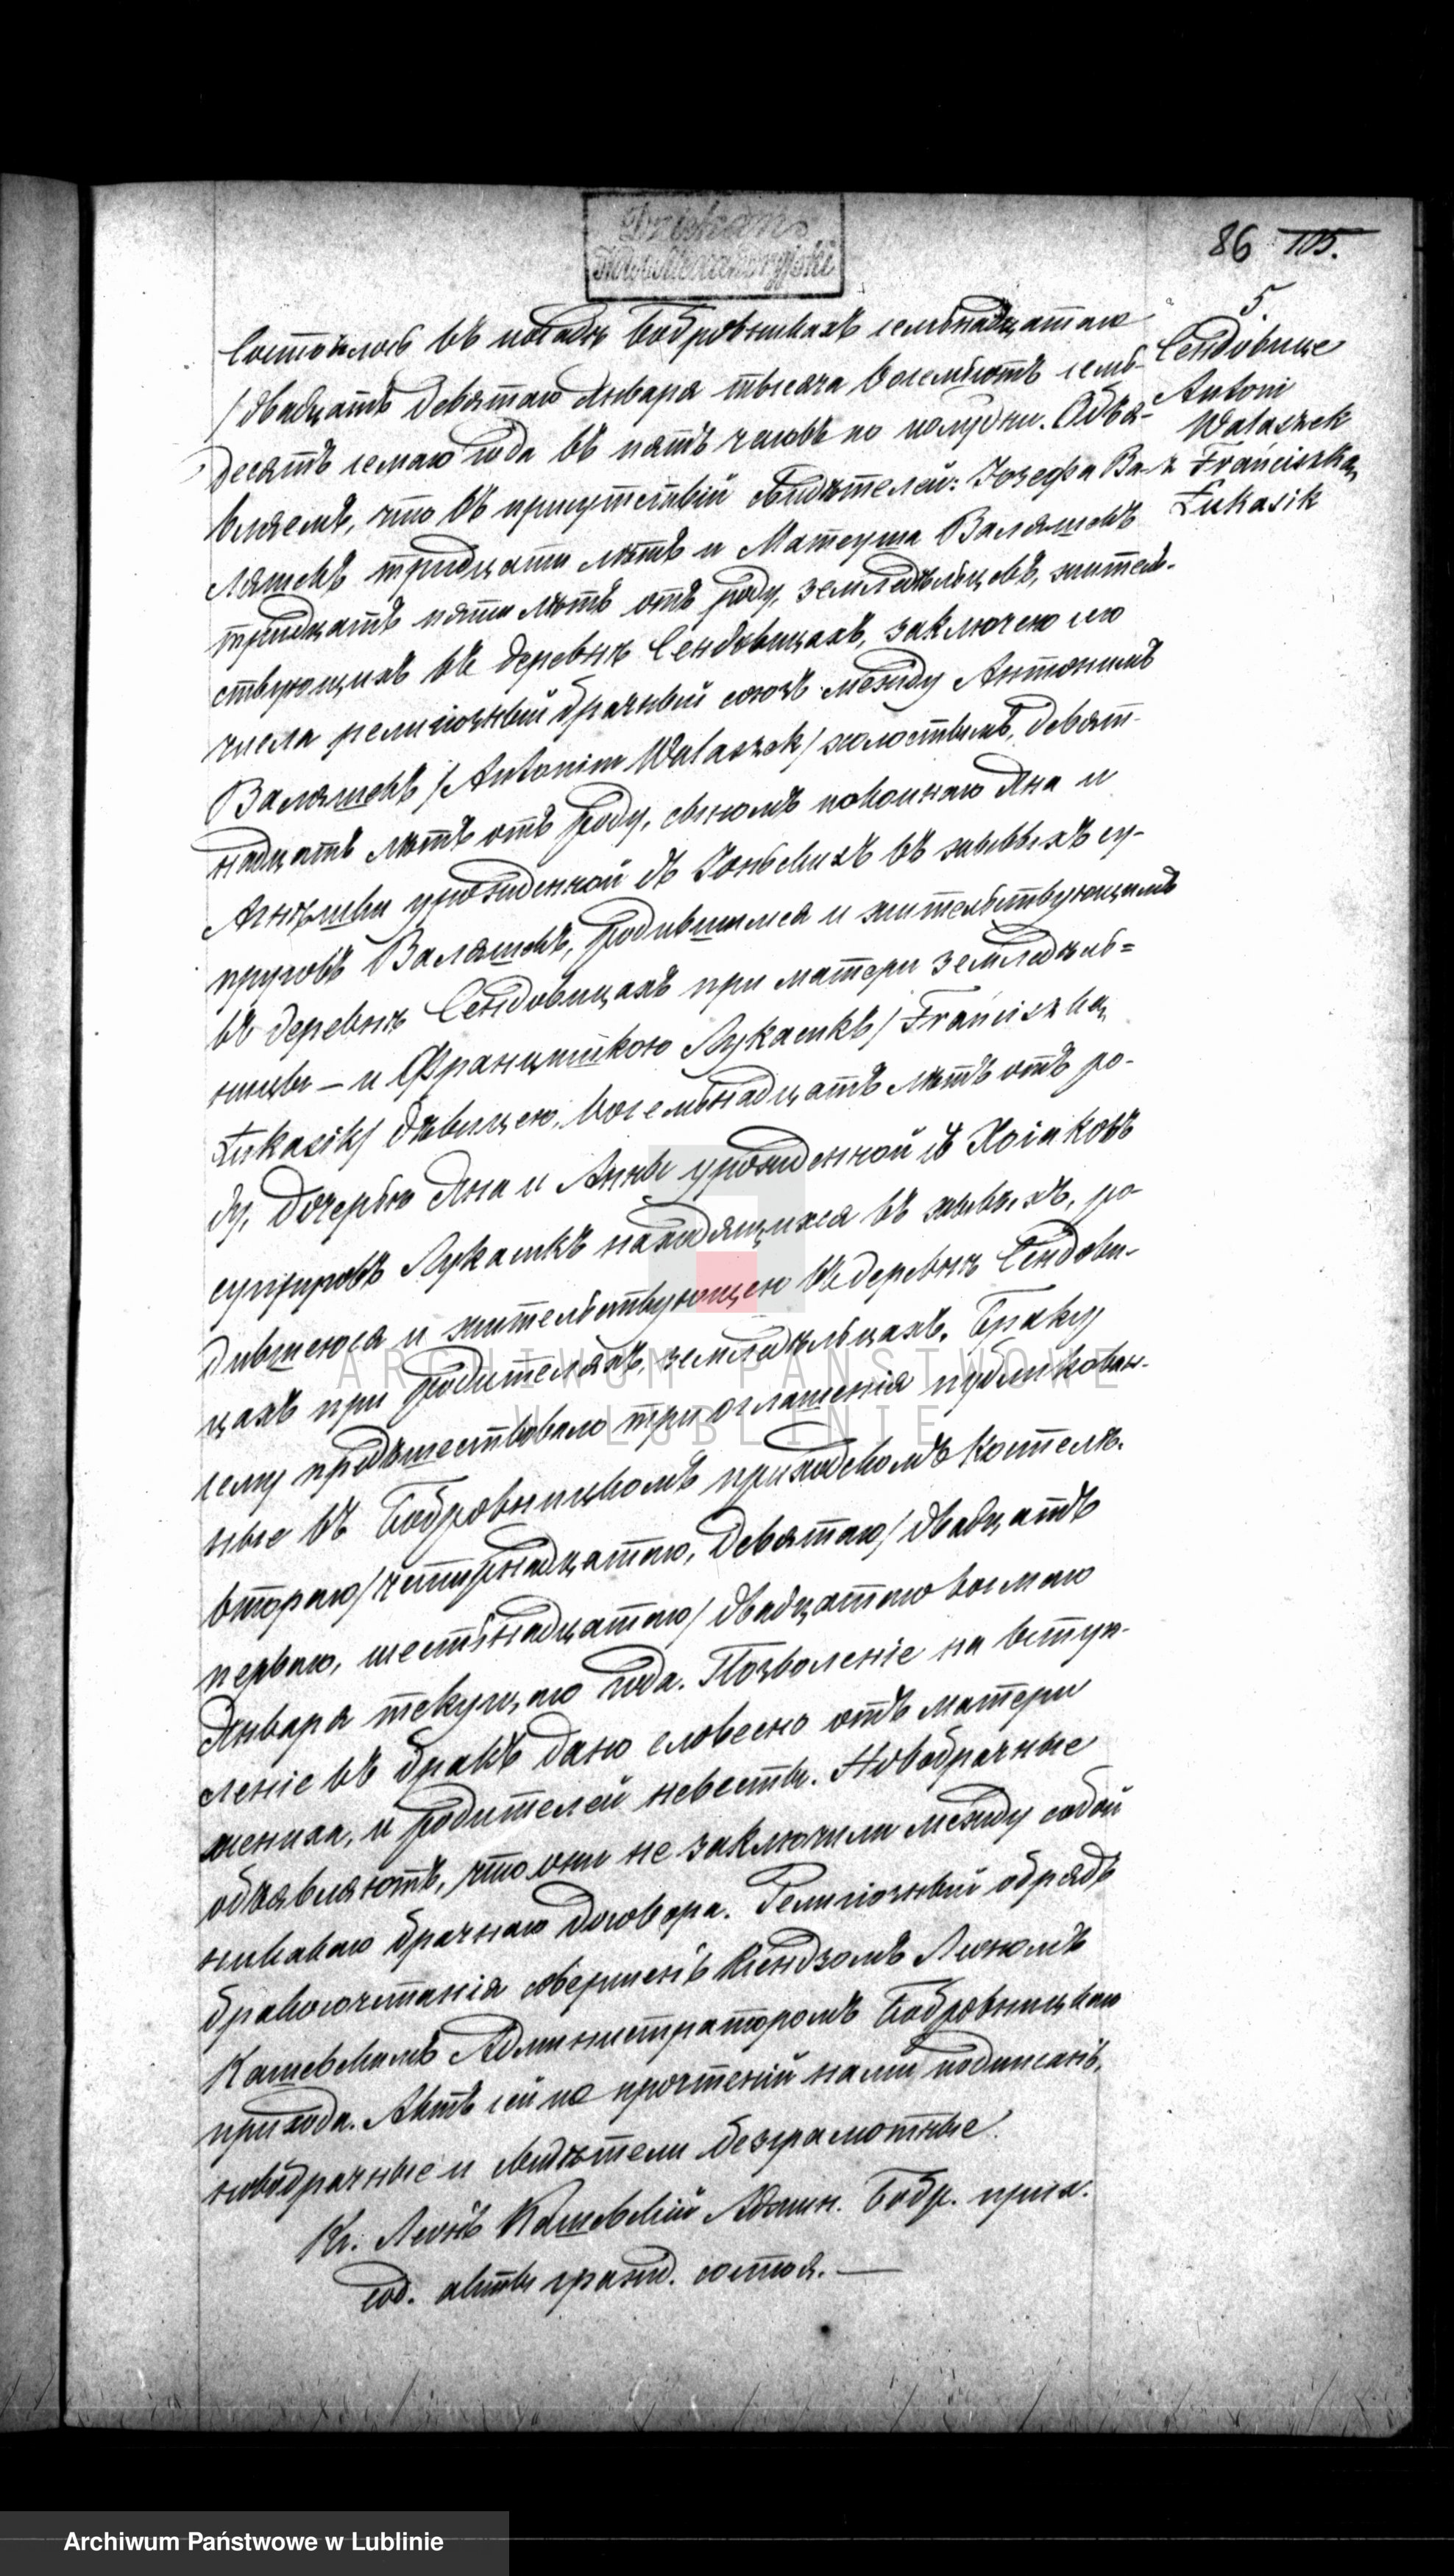 86 105.
5
Сендовице
Antoni
Walaszek
z Franciszką
Łukasik
Состоялось въ посадѣ Бобровникахъ семьнадцатаго
/двадцать девятаго Января тысяча восемьсотъ семь-
десятъ семаго года въ пять часовъ по полудни. Объя-
вляемъ, что въ присутствій свидѣтелей: Юзефа Ва-
ляшекъ тридцати лѣтъ и Матеуша Валяшекъ
тридцать пяти лѣтъ отъ роду, земледѣльцевъ, житель-
ствующихъ въ деревнѣ Сендовицахъ, заключено сего
числа религіозный брачный союзъ между Антонимъ
Валяшекъ /Antonim Walaszek/ холостымъ, девят-
надцать лѣтъ отъ роду, сыномъ покоинаго Яна и
Агнѣшки урожденной въ живыхъ су-
пруговъ Валяшекъ, родившимся и жительствующимъ
въ деревнѣ Сендовицахъ при матери земледѣль=
ницы — и Францишкою Лукасикъ /Franciszką
Łukasik/ дѣвицею, восемьнадцать лѣтъ отъ ро-
ду, дочерью Яна и Анны урожденной съ
супруговъ Лукасикъ находящихся въ живыхъ, ро-
дившеюся и жительствующею въ деревнѣ Сендови-
цахъ при родителяхъ, земледѣльцахъ. Браку
сему предшествовало три оглашенія публикован-
ные въ Бобровницкомъ приходскомъ Костелѣ.
втораго /четырнадцатаго, девятаго/ двадцать
перваго, шестьнадцатаго/ двадцатаго восмаго
Января текущаго года. Позволеніе на вступ-
леніе въ бракъ дано словесно отъ матери
жениха, и родителей невесты. Новобрачные
объявляютъ, что они не заключили между собой
никакаго брачнаго договора. Религіозный обрядъ
бракосочетанія совершенъ Ксендзомъ Леономъ
Кашевскимъ Администраторомъ Бобровницкаго
прихода. Актъ сей по прочтеній нами подписанъ,
новобрачные и свидѣтели безграмотные.
Кс. Леонъ Кашевскій Админ. Бобр. прих.
сод. акты гражд. состоя. —
ARCHIWUM PAŃSTWOWE
W LUBLINIE
Archiwum Państwowe w Lublinie